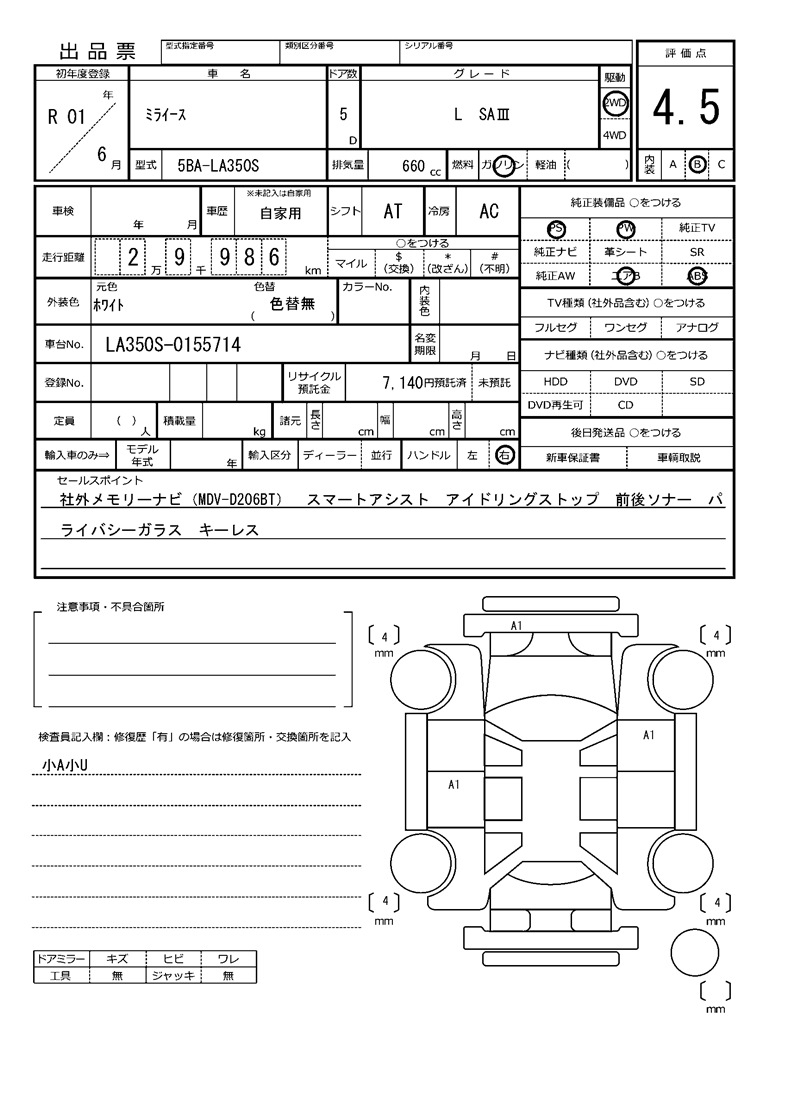 出品票
型式指定番号 類別区分番号 シリアル番号
評価点
4.5
内装 A B C
初年度登録 車名 ドア数 グレード 駆動
R 01 年 6 月 ミライース 5 D L SAⅢ 2WD
4WD
型式 5BA-LA350S 排気量 660 cc 燃料 ガソリン 軽油 ( )
車検 年 月 車歴 ※未記入は自家用 自家用 シフト AT 冷房 AC
走行距離 2 万 9 千 9 8 6 km ○をつける
マイル $ (交換) * (改ざん) # (不明)
外装色 元色 ホワイト 色替 色替無 ( ) カラーNo. 内装色
車台No. LA350S-0155714 名変期限 月 日
登録No. リサイクル預託金 7,140円預託済 未預託
定員 ( ) 人 積載量 kg 諸元 長さ cm 幅 cm 高さ cm
輸入車のみ⇒ モデル年式 年 輸入区分 ディーラー 並行 ハンドル 左 右
純正装備品 ○をつける
PS PW 純正TV
純正ナビ 革シート SR
純正AW エアB ABS
TV種類 (社外品含む) ○をつける
フルセグ ワンセグ アナログ
ナビ種類 (社外品含む) ○をつける
HDD DVD SD
DVD再生可 CD
後日発送品 ○をつける
新車保証書 車輌取説
セールスポイント
社外メモリーナビ (MDV-D206BT) スマートアシスト アイドリングストップ 前後ソナー パ
ライバシーガラス キーレス
注意事項・不具合箇所
検査員記入欄：修復歴「有」の場合は修復箇所・交換箇所を記入
小A小U
ドアミラー キズ ヒビ ワレ
工具 無 ジャッキ 無
A1
4 mm
4 mm
A1
A1
4 mm
4 mm
mm